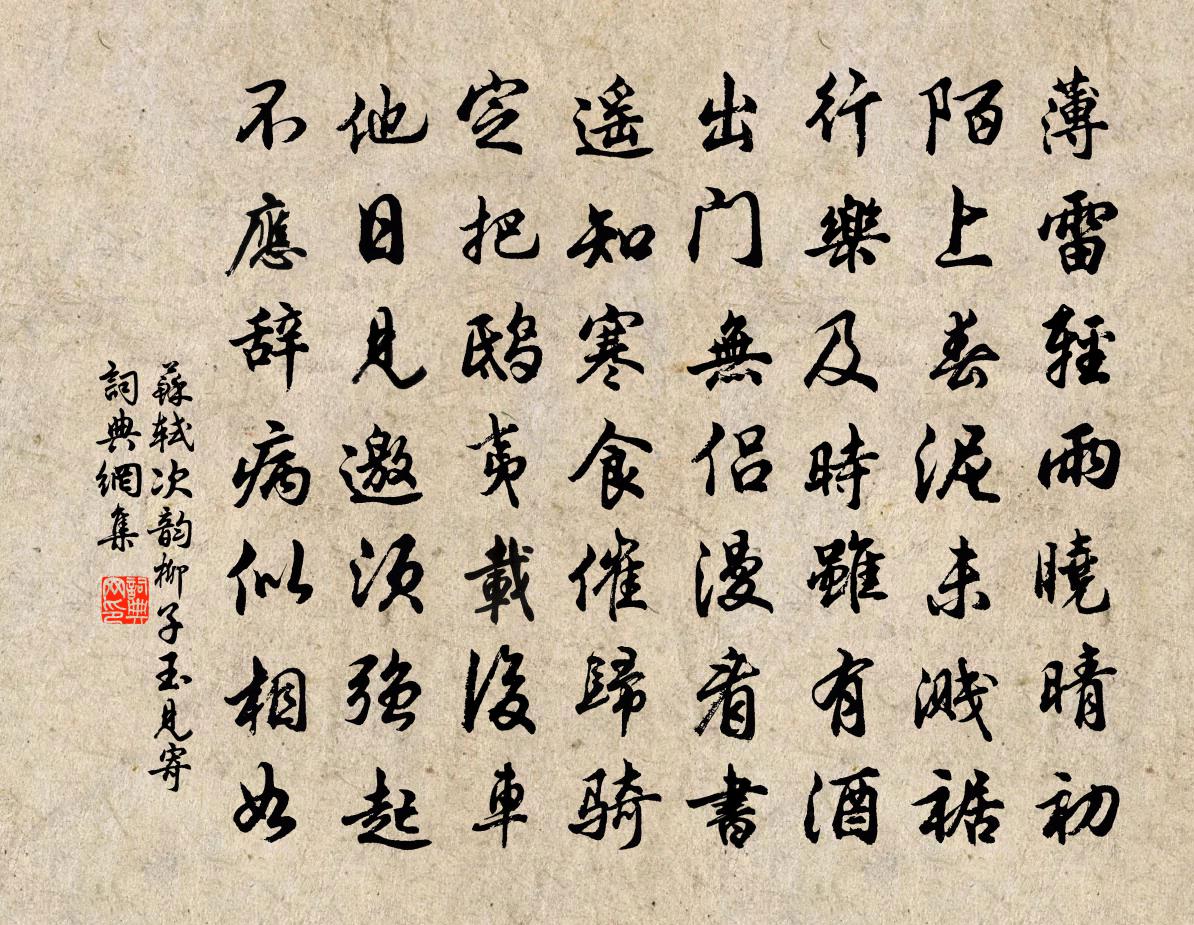 薄雷輕雨曉晴初
陌上春泥未濺裾
行樂及時雖有酒
出門無侶漫看書
遙知寒食催歸騎
定把鴟夷載後車
他日見邀須強起
不應辞病似相如
蘇軾次韵柳子玉見寄
詞典網集